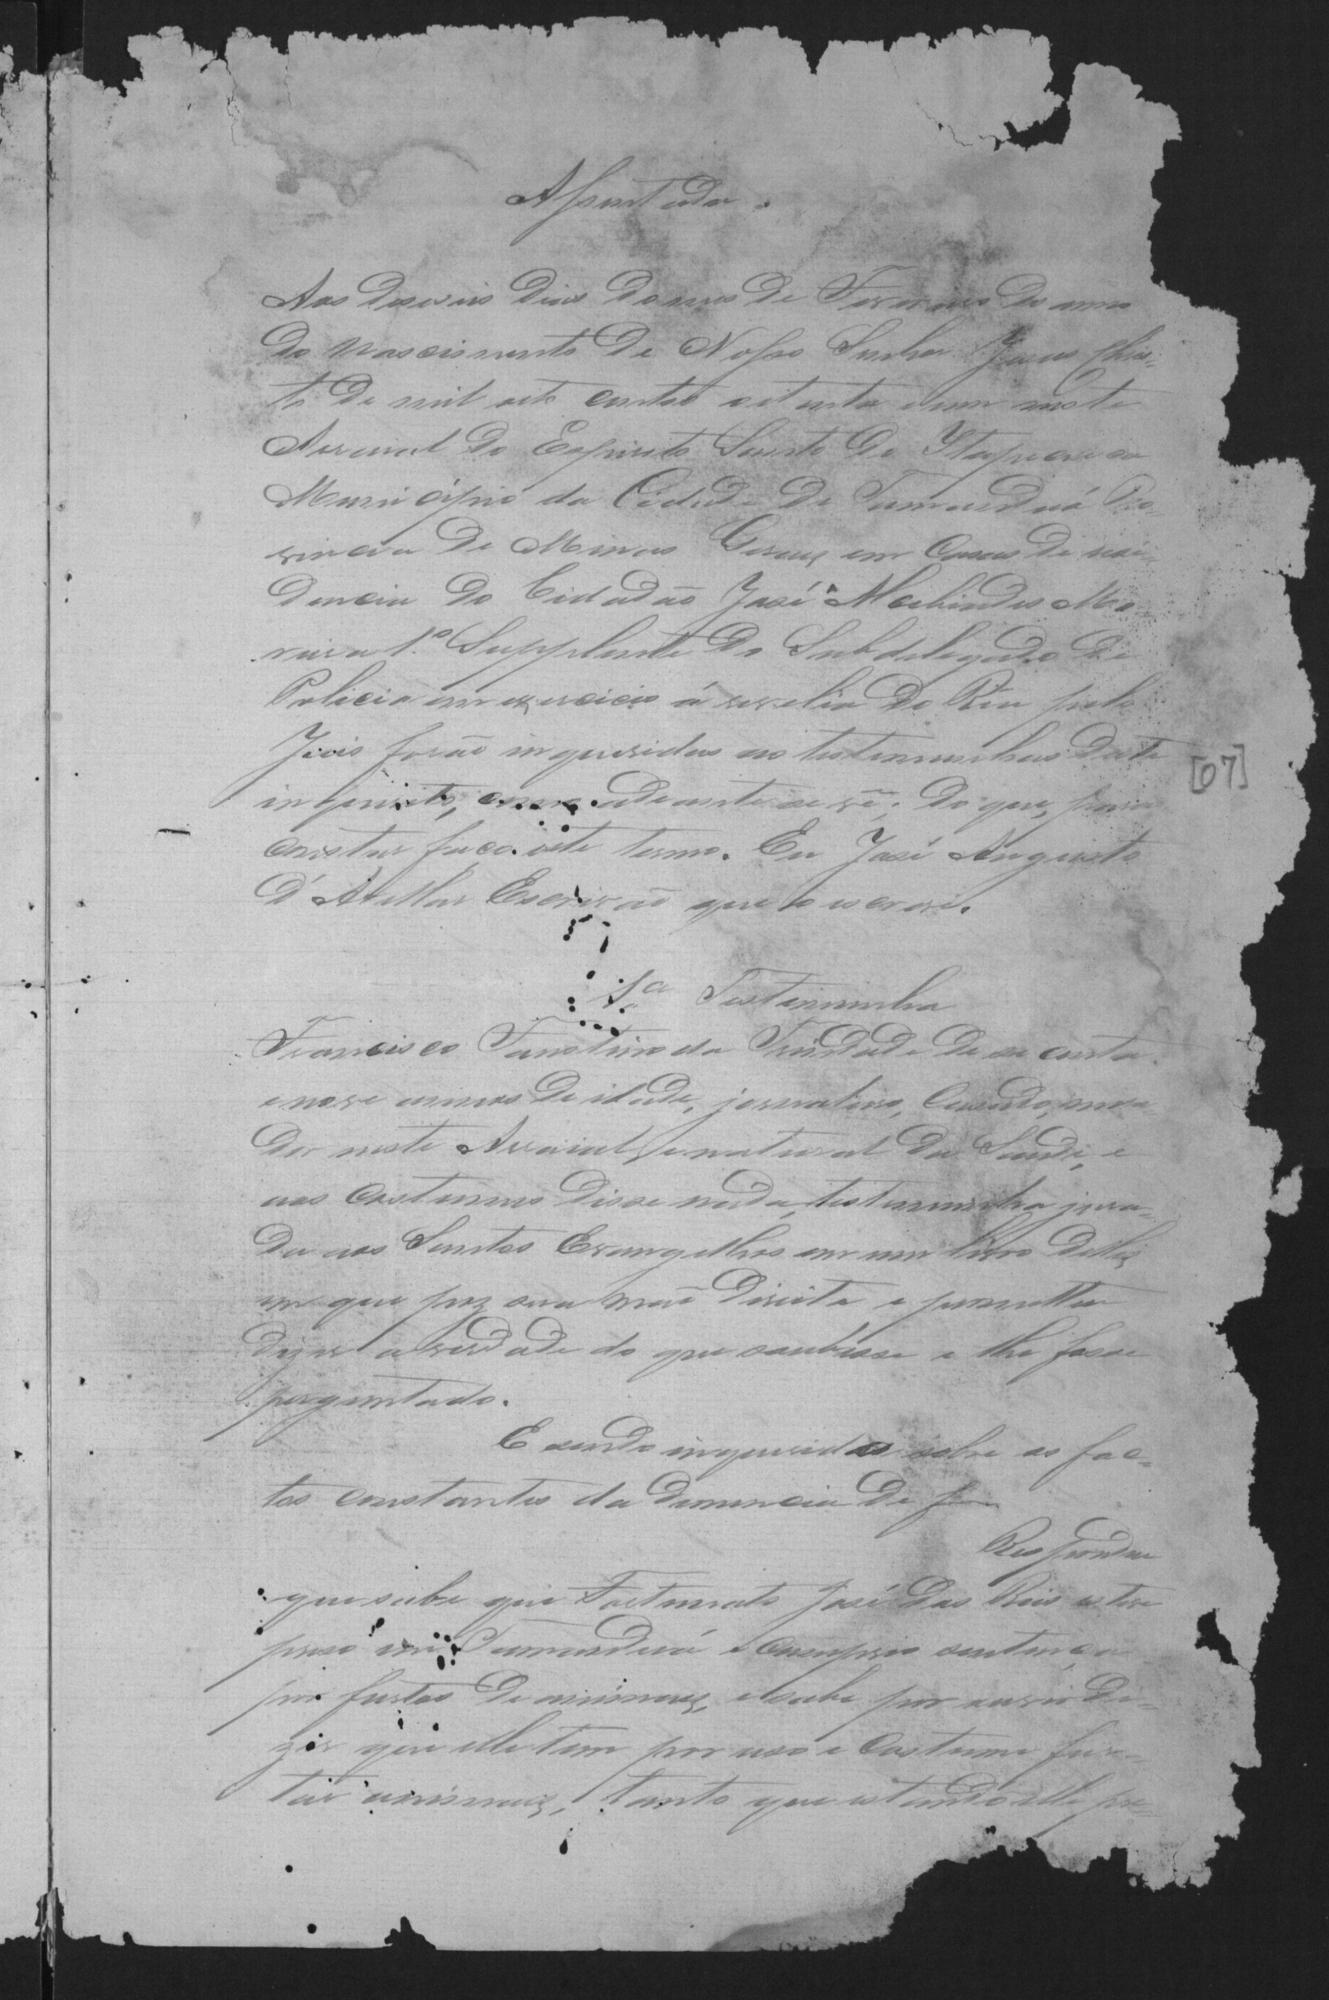 Assentada.
Aos deseseis dias do mes de Fevereiro do anno
do nascimento de Nosso Senhor Jesus Chris-
to de mil oito centos oitenta e um neste
Arraial do Espirito Santo de Itapecerica
Municipio da Cidade de Tamanduá Pro-
vincia de Minas Geraes em Casas de resi-
dencia do Cidadão José Mo-
reira 1º Supplente do Subdelegado de
Policia em exercicio á revelia do Réu pelo
Juis forão inqueridas as testemunhas deste
inquerito, como adeante se vê; do que, para
constar faço este termo. Eu José Augusto
d'Avellar Escrivão que o escrevi.
1ª Testemunha
Francisco Faustino da Trindade de secenta
e nove annos de idade, jornaleiro, Casado, mora-
dor neste Arraial, e natural da Saude, e
aos Costumes disse nada, testemunha jura-
da aos Santos Evangelhos em um livro delles
em que poz sua mão direita e prometteu
dizer a verdade do que soubesse e lhe fosse
perguntado.
E sendo inquerida sobre os fac-
tos constantes da denuncia de f
Respondeu
que sabe que Fortunato José dos Reis esteve
preso em Tamanduá e Cumprio sentença
por furtos de animaes, e sabe por ouvir di-
zer que elle tem por uso e Costume fur-
tar animaes, tanto que estando elle pre-
[07]